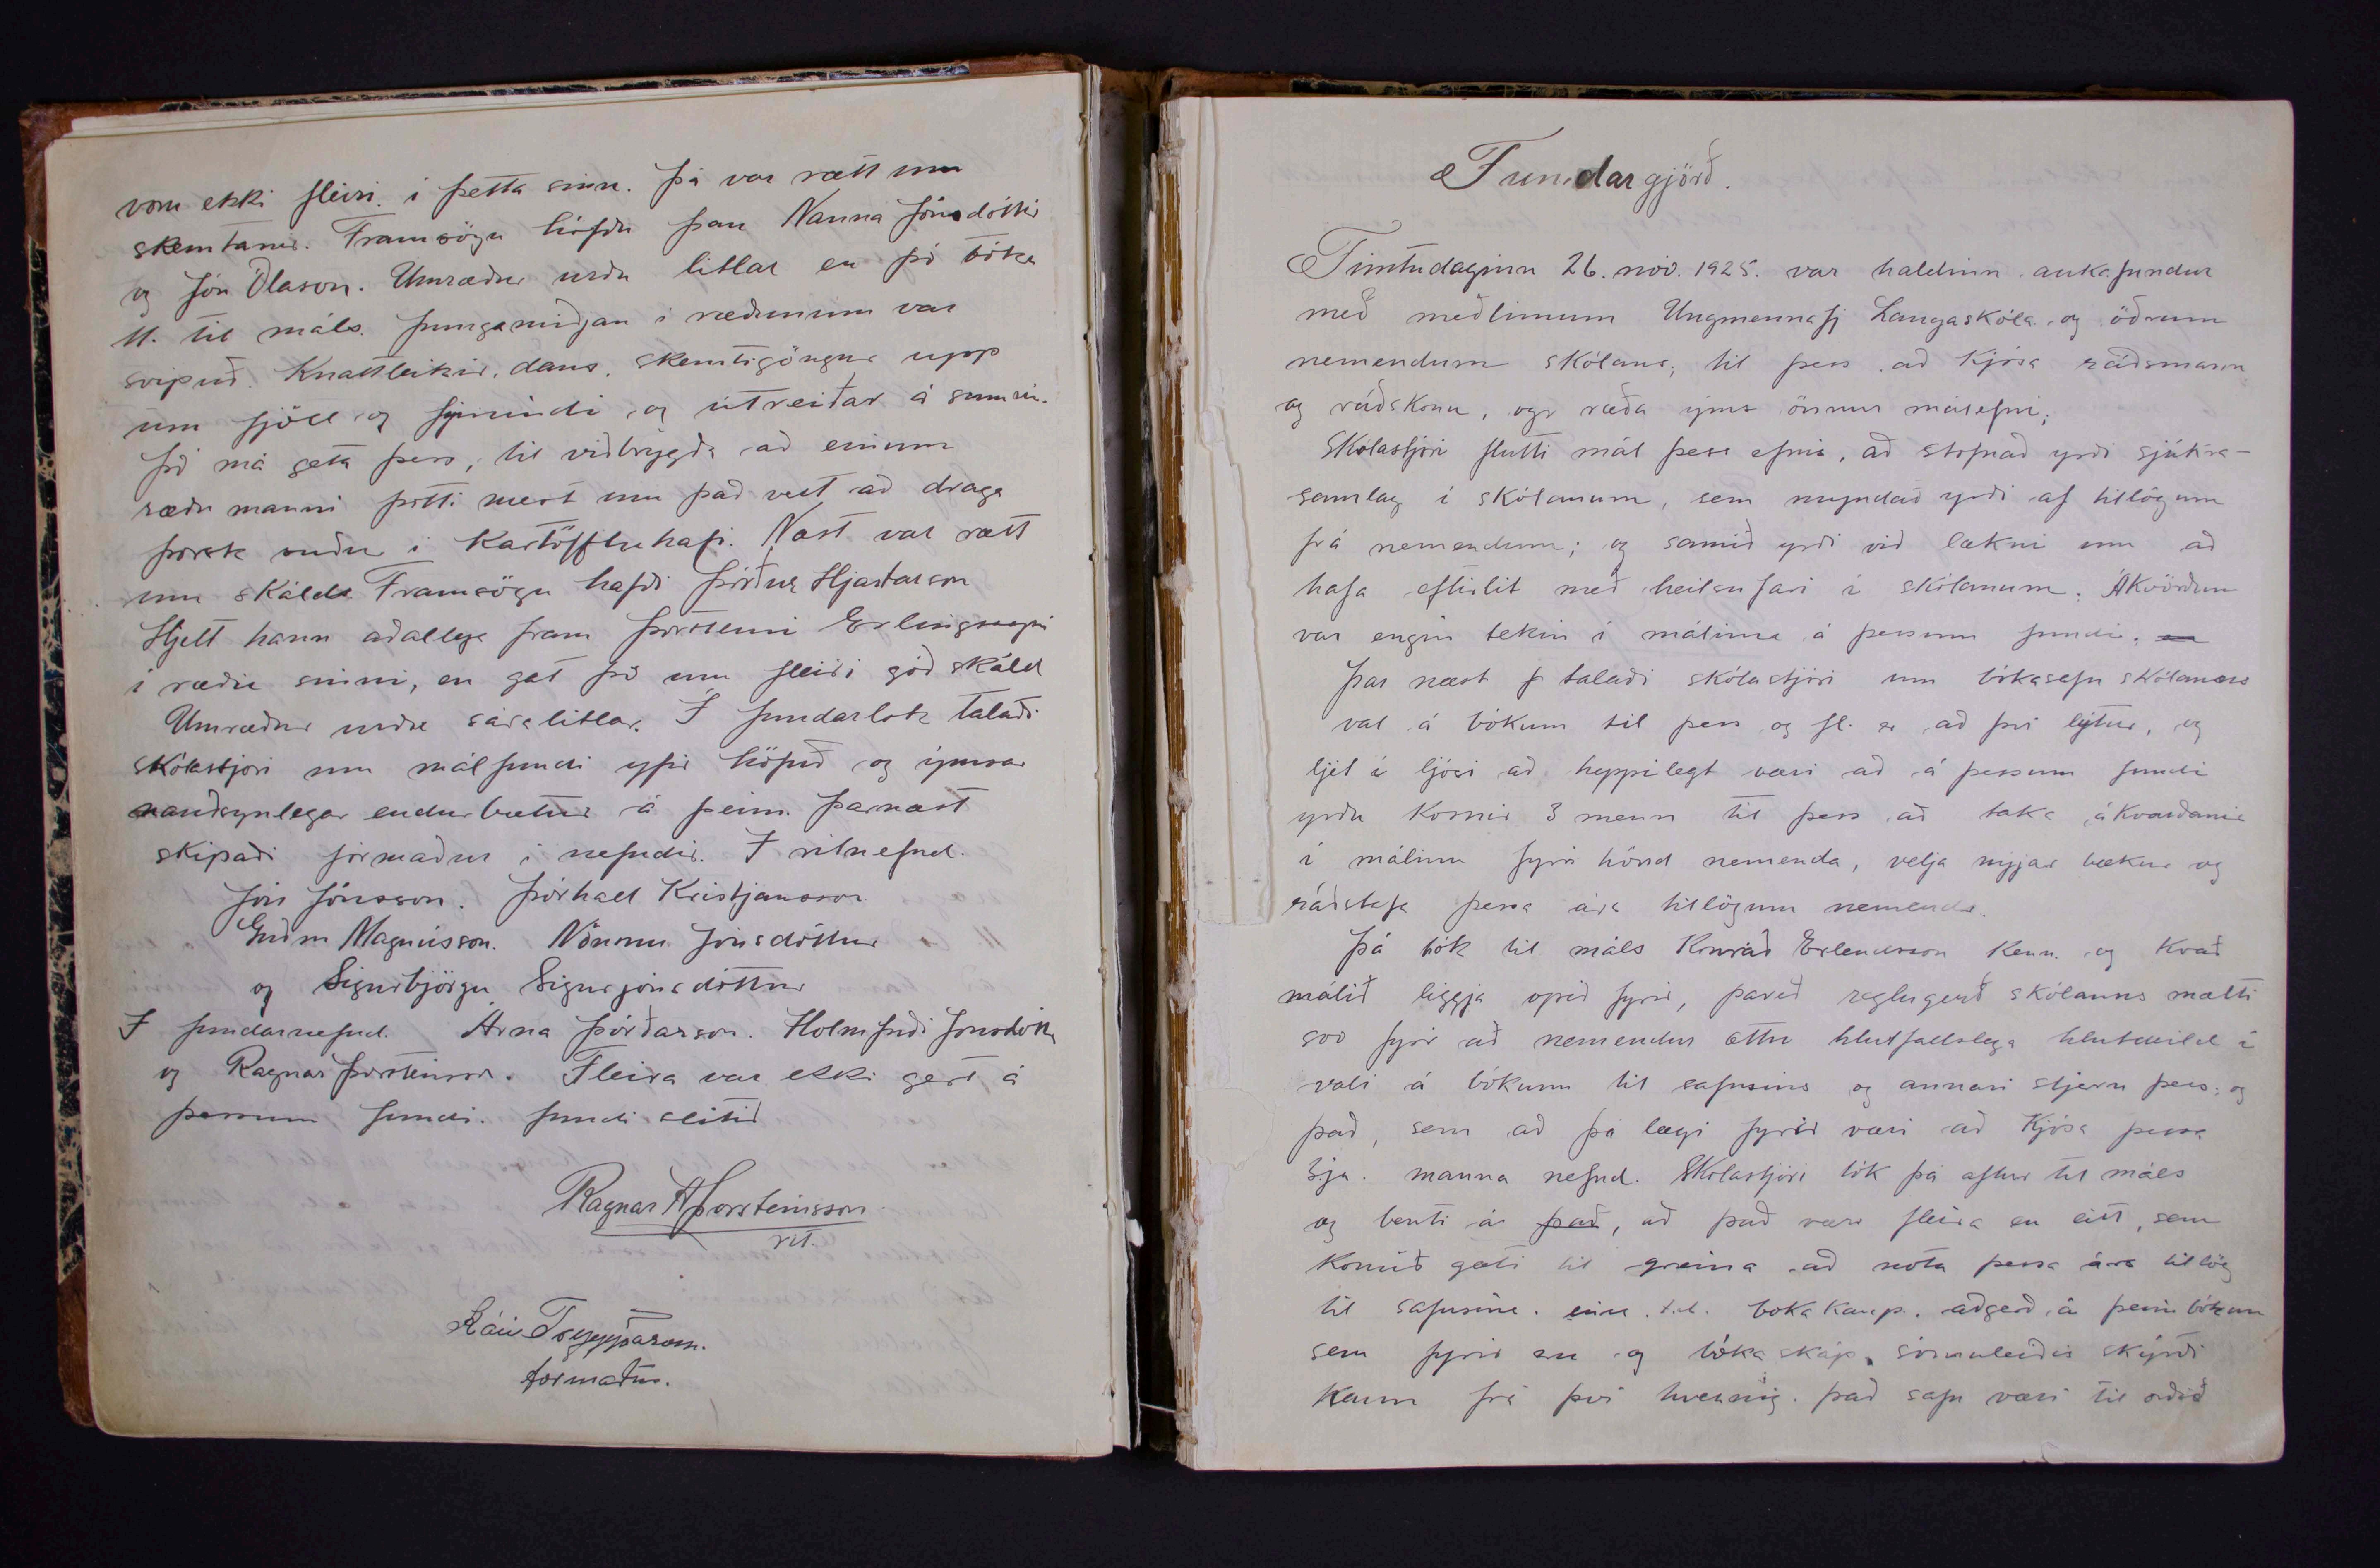 voru ekki fleiri í þetta sinn. Þá var rætt um
skemtanir. Framsögu höfðu þau Nanna Jónsdóttir
og Jón Ólason. Umræður urðu litlar en þó tóku
11. til máls. Þungamiðjan i ræðunum var
svipuð. Knattleikir, dans, skemtigöngur upp
um fjöll og firnindi og útreiðar á sumrin.
Þó má geta þess, til viðbrygða að einum
ræðu manni þótti mest um það vert að draga
þorsk uður i Kartöffluhafi. Næst var rætt
um skáld. Framsögu hafði Þórður Hjartarson
Hjelt hann aðallega fram Þorsteini Erlingssyni
i ræðu sinni, en gat þó um fleiri góð skáld
Umræður urðu sára litlar. I fundarlok talaði
skólastjóri um málfundi yfir höfuð og ýmsar
nauðsynlegar endurbætur á þeim. Þarnæst
skipaði formaður i nefndir. I ritnefnd.
Jón Jónsson. Þórhall Kristjansson
Guðm Magnússon. Nönnu Jónsdóttur
og Sigurbjörgu Sigurjónsdóttur
I fundarnefnd. Árna Þórðarson. Holmfriði Jónsdóttu
og Ragnar Þorsteinsson. Fleira var ekki gert á
þessum fundi. Fundi slitið
Ragnar A Þorsteinsson
rit.
Kári Tryggvason.
formaður.
Fundargjörð.
Fimtudaginn 26. nóv. 1925. var haldinn aukafundur
með meðlimum Ungmennafj Laugaskóla og öðrum
nemendum skólans, til þess að kjósa ráðsmann
og ráðskonu, og ræða ýms önnur málefni.
Skólastjóri flutti mál þess efnis, að stofnað yrði sjúkra-
samlag í skólanum, sem myndað yrði af tillögum
frá nemendum; og samið yrði við lækni um að
hafa eftirlit með heilsufari í skólanum. Ákvörðun
var engin tekin í málinu á þessum fundi.
Þar næst talaði skólastjóri um bókasafn skólanns
val á bókum til þess og fl. er að því lýtur, og
ljet í ljósi að heppilegt væri að á þessum fundi
yrðu kosnir 3 menn til þess að taka ákvarðanir
í málinu fyrir hönd nemenda, velja nyjar bækur og
ráðstafa þessa árs tillögum nemenda.
Þá tók til máls Konráð Erlendsson kenn. og kvað
málið liggja opið fyrir, þareð reglugerð skólanns mælti
svo fyrir að nemendur ættu hlutfallslega hlutdeild í
vali á bókum til safnsins og annari stjórn þess. og
það, sem að þá lægi fyrir væri að kjósa þessa
3ja. manna nefnd. Skólastjóri tók þá aftur til máls
og benti á það, að það væri fleira en eitt, sem
komið gæti til greina að nota þessa árs tillög
til safnsins. eins t.d. boka kaup. aðgerð á þeim bókum
sem fyrir eru og bóka skáp. sömuleiðis skýrði
hann frá því hvernig það safn væri til orðið